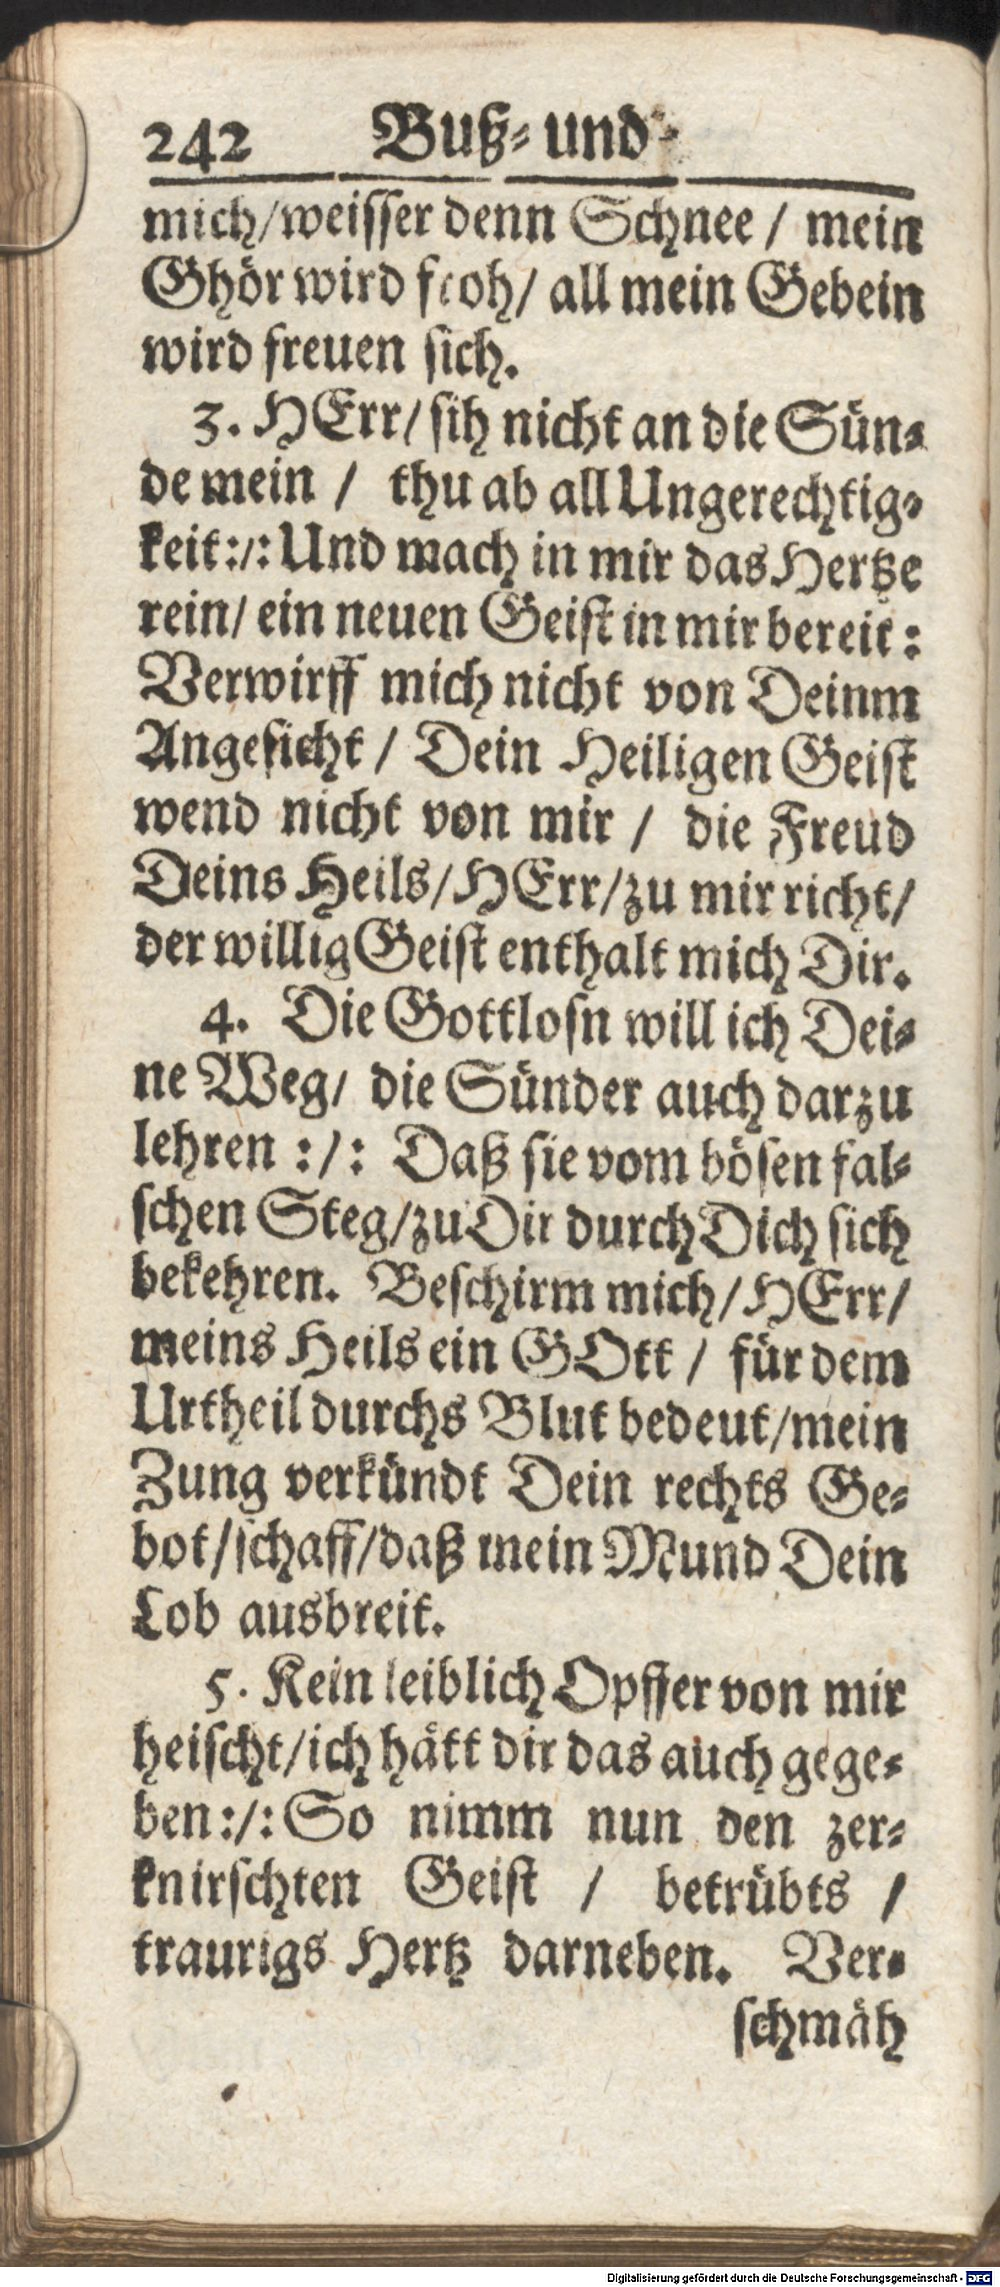 242 Buß- und
mich/weisser denn Schnee / mein
Ghör wird froh/ all mein Gebein
wird freuen sich.
3. HErr/ sih nicht an die Sün-
de mein / thu ab all Ungerechtig-
keit:/: Und mach in mir das Hertze
rein/ ein neuen Geist in mir bereit:
Verwirff mich nicht von Deinm
Angesicht / Dein Heiligen Geist
wend nicht von mir / die Freud
Deins Heils/HErr/zu mir richt/
der willig Geist enthalt mich Dir.
4. Die Gottlosn will ich Dei-
ne Weg/ die Sünder auch darzu
lehren :/: Daß sie vom bösen fal-
schen Steg/zu Dir durch Dich sich
bekehren. Beschirm mich/HErr/
meins Heils ein GOtt / für dem
Urtheil durchs Blut bedeut/mein
Zung verkündt Dein rechts Ge-
bot/schaff/daß mein Mund Dein
Lob ausbreit.
5. Kein leiblich Opffer von mir
heischt/ich hätt dir das auch gege-
ben:/: So nimm nun den zer-
knirschten Geist / betrübts /
traurigs Hertz darneben. Ver-
schmäh
Digitalisierung gefördert durch die Deutsche Forschungsgemeinschaft - DFG